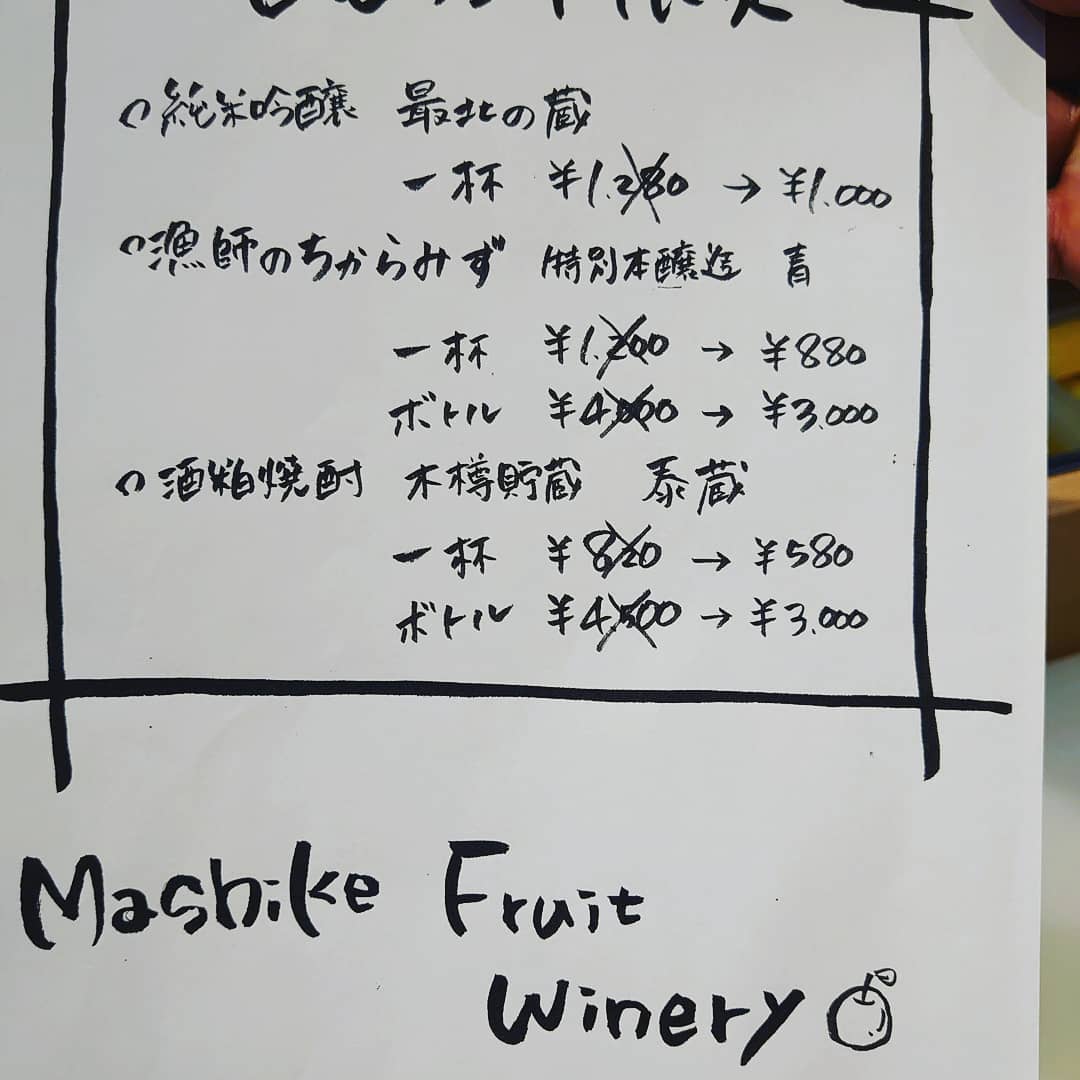 ○純米吟醸 最北の蔵
一杯 ¥1.280 → ¥1.000
○漁師のちからみず 特別本醸造 青
一杯 ¥1.200 → ¥880
ボトル ¥4.000 → ¥3.000
○酒粕焼酎 木樽貯蔵 泰蔵
一杯 ¥820 → ¥580
ボトル ¥4.500 → ¥3.000
Mashike Fruit
Winery